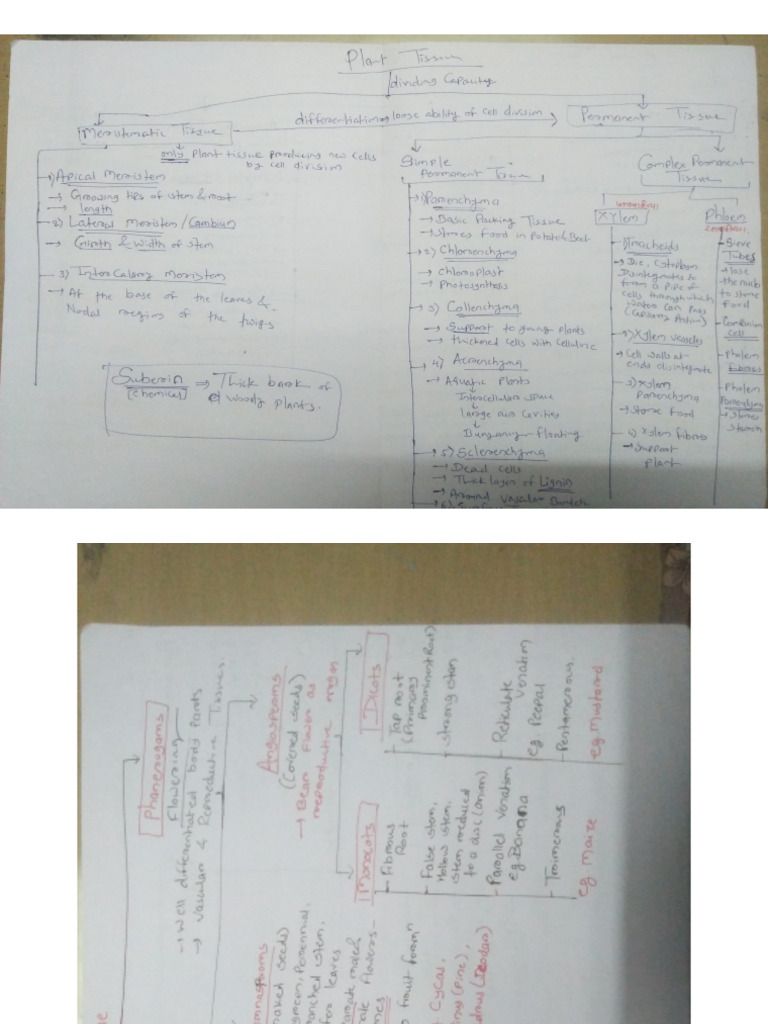 Plant Tissue
dividing Capacity
Meristematic Tissue
differentiation, loose ability of cell division
Permanent Tissue
only plant tissue producing new cells
by cell division
1) Apical Meristem
→ Growing tips of stem & root
→ length
2) Lateral Meristem / Cambium
→ Girth & width of stem
3) InterCalary meristem
→ At the base of the leaves &
Nodal regions of the twigs
Suberin → Thick bark of
(chemical) woody plants.
Simple
Permanent Tissue
1) Parenchyma
→ Basic Packing Tissue
→ Stores Food in Potato & Beet
2) Chlorenchyma
→ chloroplast
→ Photosynthesis
3) Collenchyma
→ Support to young plants
→ thickened cells with cellulose
4) Aerenchyma
→ Aquatic Plants
Intercellular space
large air cavities
Buoyancy - Floating
5) Sclerenchyma
→ Dead cells
→ Thick layers of Lignin
→ Around Vascular Bundle
Complex Permanent
Tissue
Xylem
1) Tracheids
→ Die, Cytoplasm
Disintegrates to
form a pipe of
cells through which
water can pass
(Capillary Action)
2) Xylem vessels
→ Cell walls at
ends disintegrate
3) Xylem
Parenchyma
→ Store food
4) Xylem fibres
→ Support
plant
Phloem
→ Sieve
Tubes
→ lose
to store
Food
Companion
Cell
Phloem
Fibres
Phloem
Parenchyma
→ Stores
Starch
Phanerogams
Flowering
→ Well differentiated body parts
→ Vascular & Reproductive Tissues
Angiosperms
(Covered seeds)
→ Bear Flower as
reproductive organ
Monocots
- Fibrous
Root
- False stem,
Hollow stem,
stem reduced
to a disc (onion)
- Parallel venation
eg. Banana
- Trimerous
eg Maize
Dicots
- Tap root
(Primary
Prominent Root)
- Strong stem
- Reticulate
venation
eg. Peepal
- Pentamerous.
eg Mustard
(naked seeds)
leaves
fruit form
Cycas,
(Pine),
(Deodar)